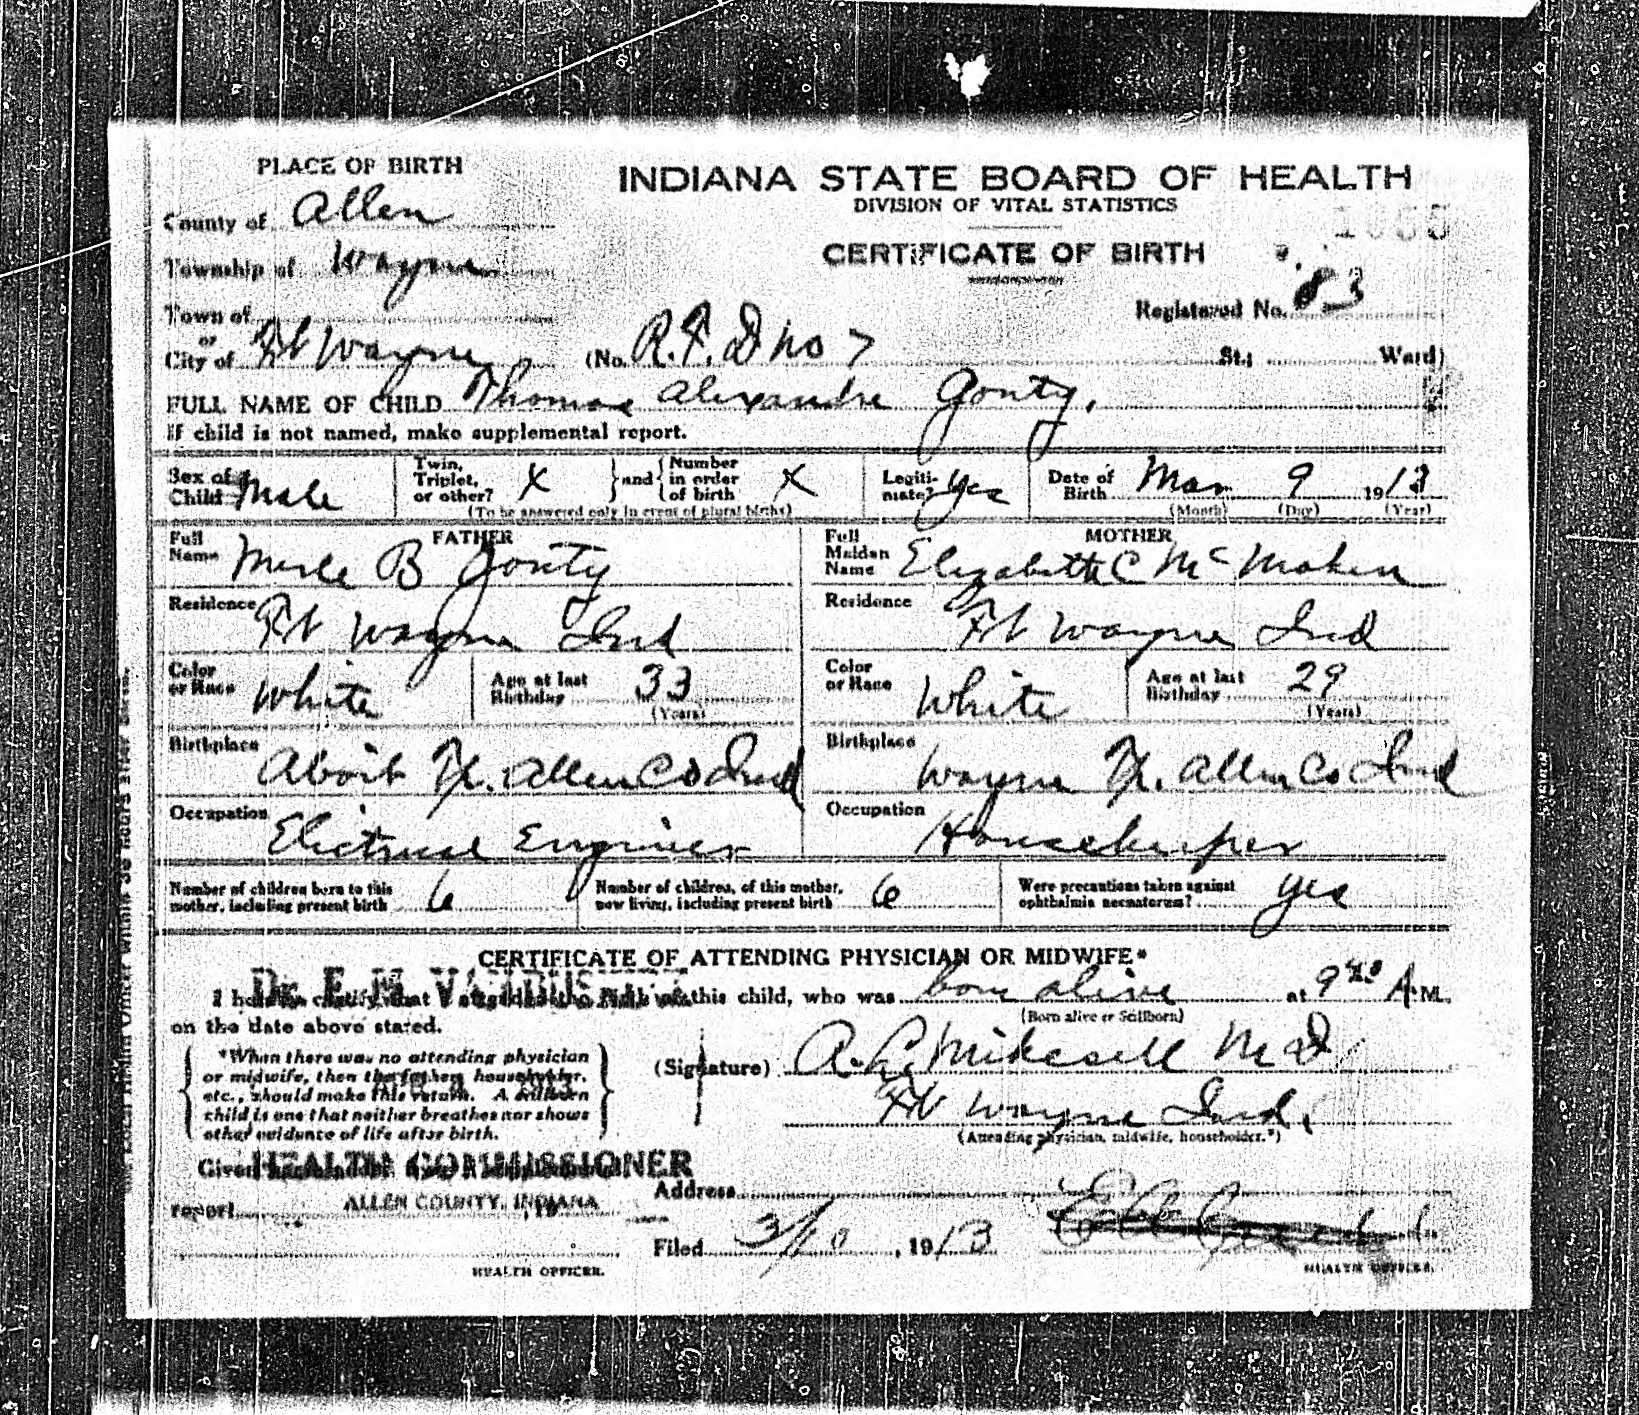 PLACE OF BIRTH
INDIANA STATE BOARD OF HEALTH
DIVISION OF VITAL STATISTICS
County of Allen
CERTIFICATE OF BIRTH
Township of Wayne
Registered No. 83
Town of
or
City of Ft Wayne (No. R.F.D no 7 St.; Ward)
FULL NAME OF CHILD Thomas Alexandre Gouty,
If child is not named, make supplemental report.
Sex of Child Male Twin, Triplet, or other? X and Number in order of birth X Legitimate? yes Date of Birth Mar 9 1913
(To be answered only in event of plural births) (Month) (Day) (Year)
FATHER MOTHER
Full Name Merle B Gouty Full Maiden Name Elizabeth C McMaken
Residence Ft Wayne Ind Residence Ft Wayne Ind
Color or Race White Age at last Birthday 33 (Years) Color or Race White Age at last Birthday 29 (Years)
Birthplace Aboit Tp. Allen Co Ind Birthplace Wayne Tp. Allen Co Ind
Occupation Electrical Engineer Occupation Housekeeper
Number of children born to this mother, including present birth 6 Number of children, of this mother, now living, including present birth 6 Were precautions taken against ophthalmia neonatorum? yes
CERTIFICATE OF ATTENDING PHYSICIAN OR MIDWIFE*
Dr. E. M.
I hereby certify that I attended the birth of this child, who was born alive at 9 A.M.
(Born alive or Stillborn)
on the date above stated.
*When there was no attending physician
or midwife, then the father, householder,
etc., should make this return. A stillborn
child is one that neither breathes nor shows
other evidence of life after birth.
(Signature) A. P. Mikesell M.D.
Ft Wayne Ind.
(Attending physician, midwife, householder.*)
Given
HEALTH COMMISSIONER
ALLEN COUNTY, INDIANA
report
Address
Filed 3/10, 1913
HEALTH OFFICER.
HEALTH OFFICER.